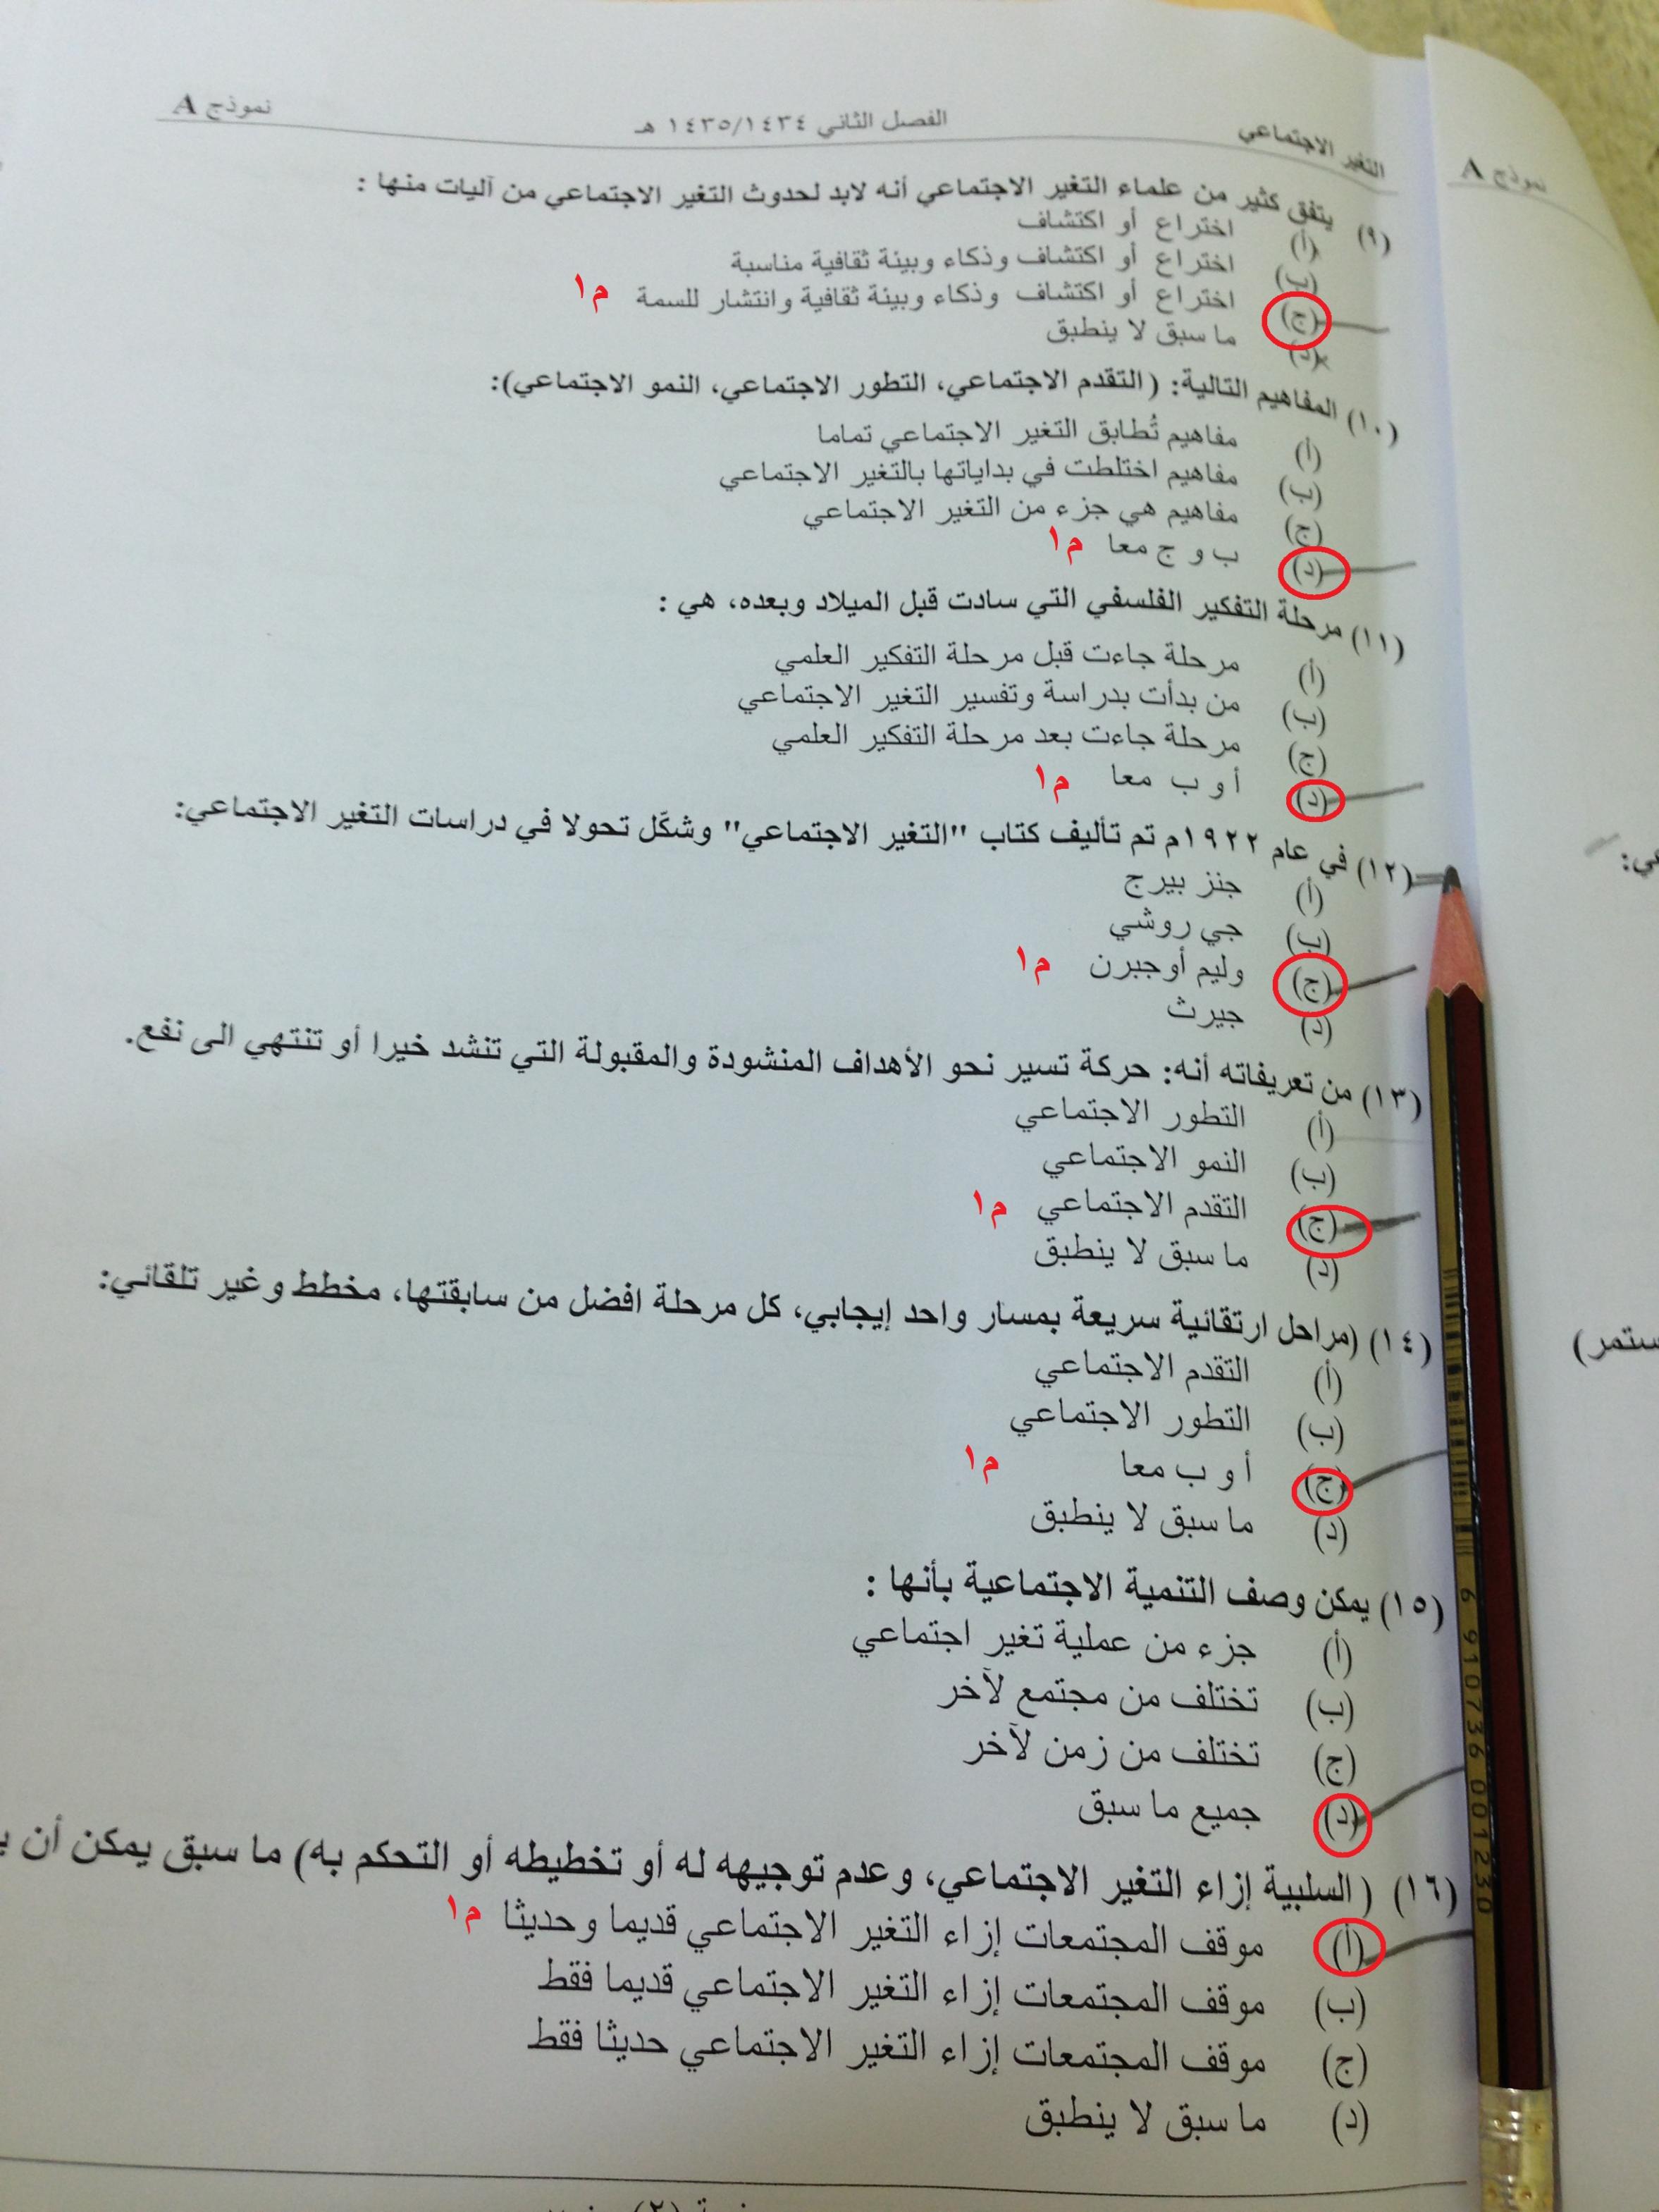 التغير الاجتماعي الفصل الثاني ١٤٣٥/١٤٣٤ هـ نموذج A
(٩) يتفق كثير من علماء التغير الاجتماعي أنه لابد لحدوث التغير الاجتماعي من آليات منها :
(أ) اختراع أو اكتشاف
(ب) اختراع أو اكتشاف وذكاء وبيئة ثقافية مناسبة
(ج) اختراع أو اكتشاف وذكاء وبيئة ثقافية وانتشار للسمة م١
(د) ما سبق لا ينطبق
(١٠) المفاهيم التالية: (التقدم الاجتماعي، التطور الاجتماعي، النمو الاجتماعي):
(أ) مفاهيم تُطابق التغير الاجتماعي تماما
(ب) مفاهيم اختلطت في بداياتها بالتغير الاجتماعي
(ج) مفاهيم هي جزء من التغير الاجتماعي
(د) ب و ج معا م١
(١١) مرحلة التفكير الفلسفي التي سادت قبل الميلاد وبعده، هي :
(أ) مرحلة جاءت قبل مرحلة التفكير العلمي
(ب) من بدأت بدراسة وتفسير التغير الاجتماعي
(ج) مرحلة جاءت بعد مرحلة التفكير العلمي
(د) أ و ب معا م١
(١٢) في عام ١٩٢٢م تم تأليف كتاب "التغير الاجتماعي" وشكّل تحولا في دراسات التغير الاجتماعي:
(أ) جنز بيرج
(ب) جي روشي
(ج) وليم أوجبرن م١
(د) جيرث
(١٣) من تعريفاته أنه: حركة تسير نحو الأهداف المنشودة والمقبولة التي تنشد خيرا أو تنتهي الى نفع.
(أ) التطور الاجتماعي
(ب) النمو الاجتماعي
(ج) التقدم الاجتماعي م١
(د) ما سبق لا ينطبق
(١٤) (مراحل ارتقائية سريعة بمسار واحد إيجابي، كل مرحلة افضل من سابقتها، مخطط وغير تلقائي:
(أ) التقدم الاجتماعي
(ب) التطور الاجتماعي
(ج) أ و ب معا م١
(د) ما سبق لا ينطبق
(١٥) يمكن وصف التنمية الاجتماعية بأنها :
(أ) جزء من عملية تغير اجتماعي
(ب) تختلف من مجتمع لآخر
(ج) تختلف من زمن لآخر
(د) جميع ما سبق
(١٦) (السلبية إزاء التغير الاجتماعي، وعدم توجيهه له أو تخطيطه أو التحكم به) ما سبق يمكن أن
(أ) موقف المجتمعات إزاء التغير الاجتماعي قديما وحديثا م١
(ب) موقف المجتمعات إزاء التغير الاجتماعي قديما فقط
(ج) موقف المجتمعات إزاء التغير الاجتماعي حديثا فقط
(د) ما سبق لا ينطبق
نموذج A
6 910736 001230